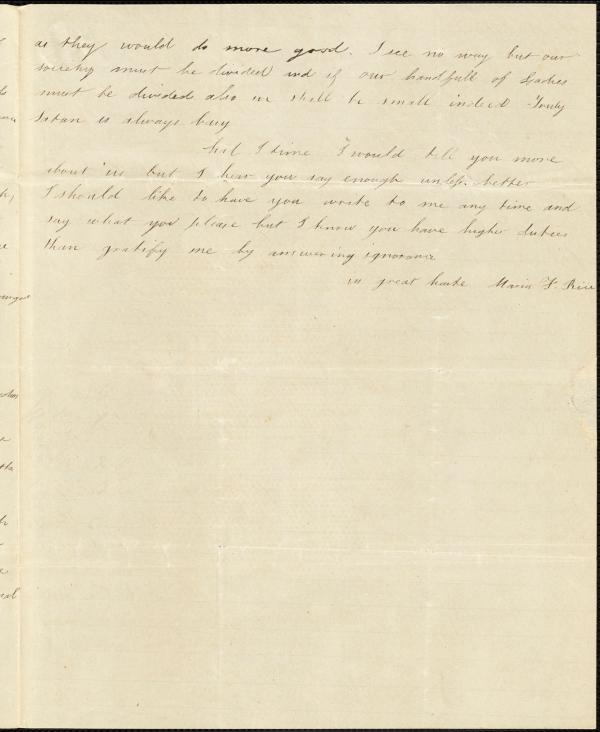 as they would do more good. I see no way but our
society must be divided and if our handfull of Ladies
must be divided also we shall be small indeed Truly
Satan is always busy
Had I time I would tell you more
about us but I hear you say enough unless better
I should like to have you write to me any time and
say what you please but I know you have higher duties
than gratify me by answering ignorance
in great haste Maria F. Rice